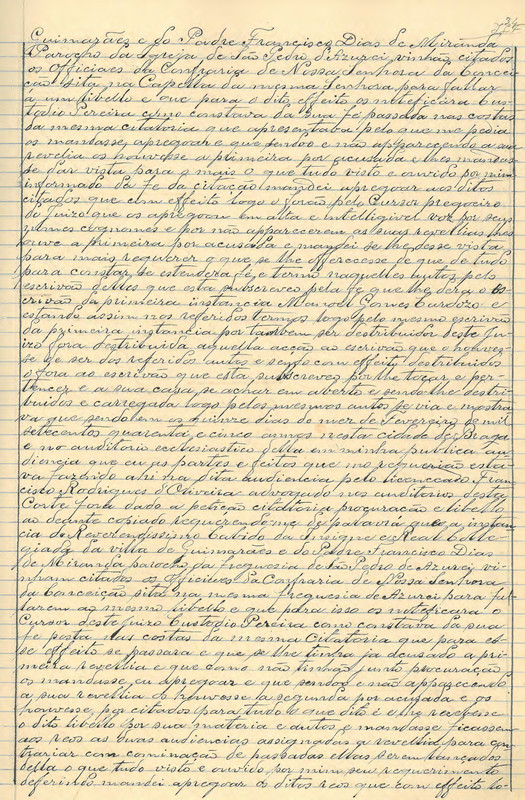 Guimarães e do Padre Francisco Dias de Miranda
Parocho da Igreja de São Pedro d'Azurei vinhão citados
os Officiaes da Confraria de Nossa Senhora da Concei-
ção sita na Capella da mesma Senhora para fallar
a um libello e que para o dito effeito os notificára Cus-
todio Pereira como constava da sua fé passada nas costas
da mesma citatoria que apresentava pelo que me pedia
os mandasse apregoar e que sendo e não apparecendo a sua
revelia os houvesse a primeira por accusada e lhes mandas-
se dar vista para o mais o que tudo visto e ouvido por mim
informado da fé da citação mandei apregoar aos ditos
citados que com effeito logo o forão pelo Cursor pregoeiro
do Juizo que os apregoou em alta e intelligivel voz por seus
nomes cognomes e por não apparecerem as suas revelias lhes
houve a primeira por accusada e mandei se lhe desse vista
para mais requerer o que se lhe offerecesse de que de tudo
para constar se estendera fé e termo naquelles autos pelo
escrivão delles que esta subscreveo pela fé que lhe dera o es-
crivão da primeira instancia Manoel Gomes Cardozo e
estando assim nos referidos termos logo pelo mesmo escrivão
da primeira instancia por também ser destribuidor deste Ju-
izo fora destribuida aquella acção ao escrivão que o houves-
se de ser dos referidos autos e sendo com effeito destribuidos
o fora ao escrivão que esta subscreveo por lhe tocar e per-
tencer e a sua casa se achar em aberto e sendo lhe destri-
buidos e carregada logo pelos mesmos autos se via e mostra-
va que sendo em os quinze dias do mez de Fevereiro de mil
setecentos quarenta e cinco annos nesta cidade de Braga
e no auditorio ecclesiastico della em minha publica au-
diencia que eu as partes e feitos que me requerião esta-
va fazendo ahi na dita audiencia pelo licenceado Fran-
cisco Rodrigues d'Oliveira advogado nos auditorios desta
Corte fora dado a petição citatoria procuração e libello
ao deante copiado requerendo-me de palavra que a instan-
cia do Reverendissimo Cabido da Insigne e Real Colle-
giada da villa de Guimarães e do Padre Francisco Dias
de Miranda parocho da freguesia de São Pedro de Azurei vi-
nham citados os Officiaes da Confraria de Nossa Senhora
da Conceição sita na mesma freguesia de Azurei para fal-
larem ao mesmo libello e que para isso os notificara o
Cursor deste Juizo Custodio Pereira como constava da sua
fé posta nas costas da mesma Citatoria que para es-
se effeito se passara e que se lhe tinha ja accusado a pri-
meira revelia e que como não tinhão junto procuração
os mandasse eu apregoar e que sendo e não apparecendo
a sua revellia os houvesse a segunda por accusada e os
houvesse por citados para tudo o que dito é e lhe recebesse
o dito libello por sua materia e autos e mandasse ficassem
aos reos as duas audiencias assignadas a revelia para con-
trariar com cominação de passadas ellas serem lançados
della o que tudo visto e ouvido por mim seu requerimento
deferindo mandei apregoar os ditos reos que com effeito lo-